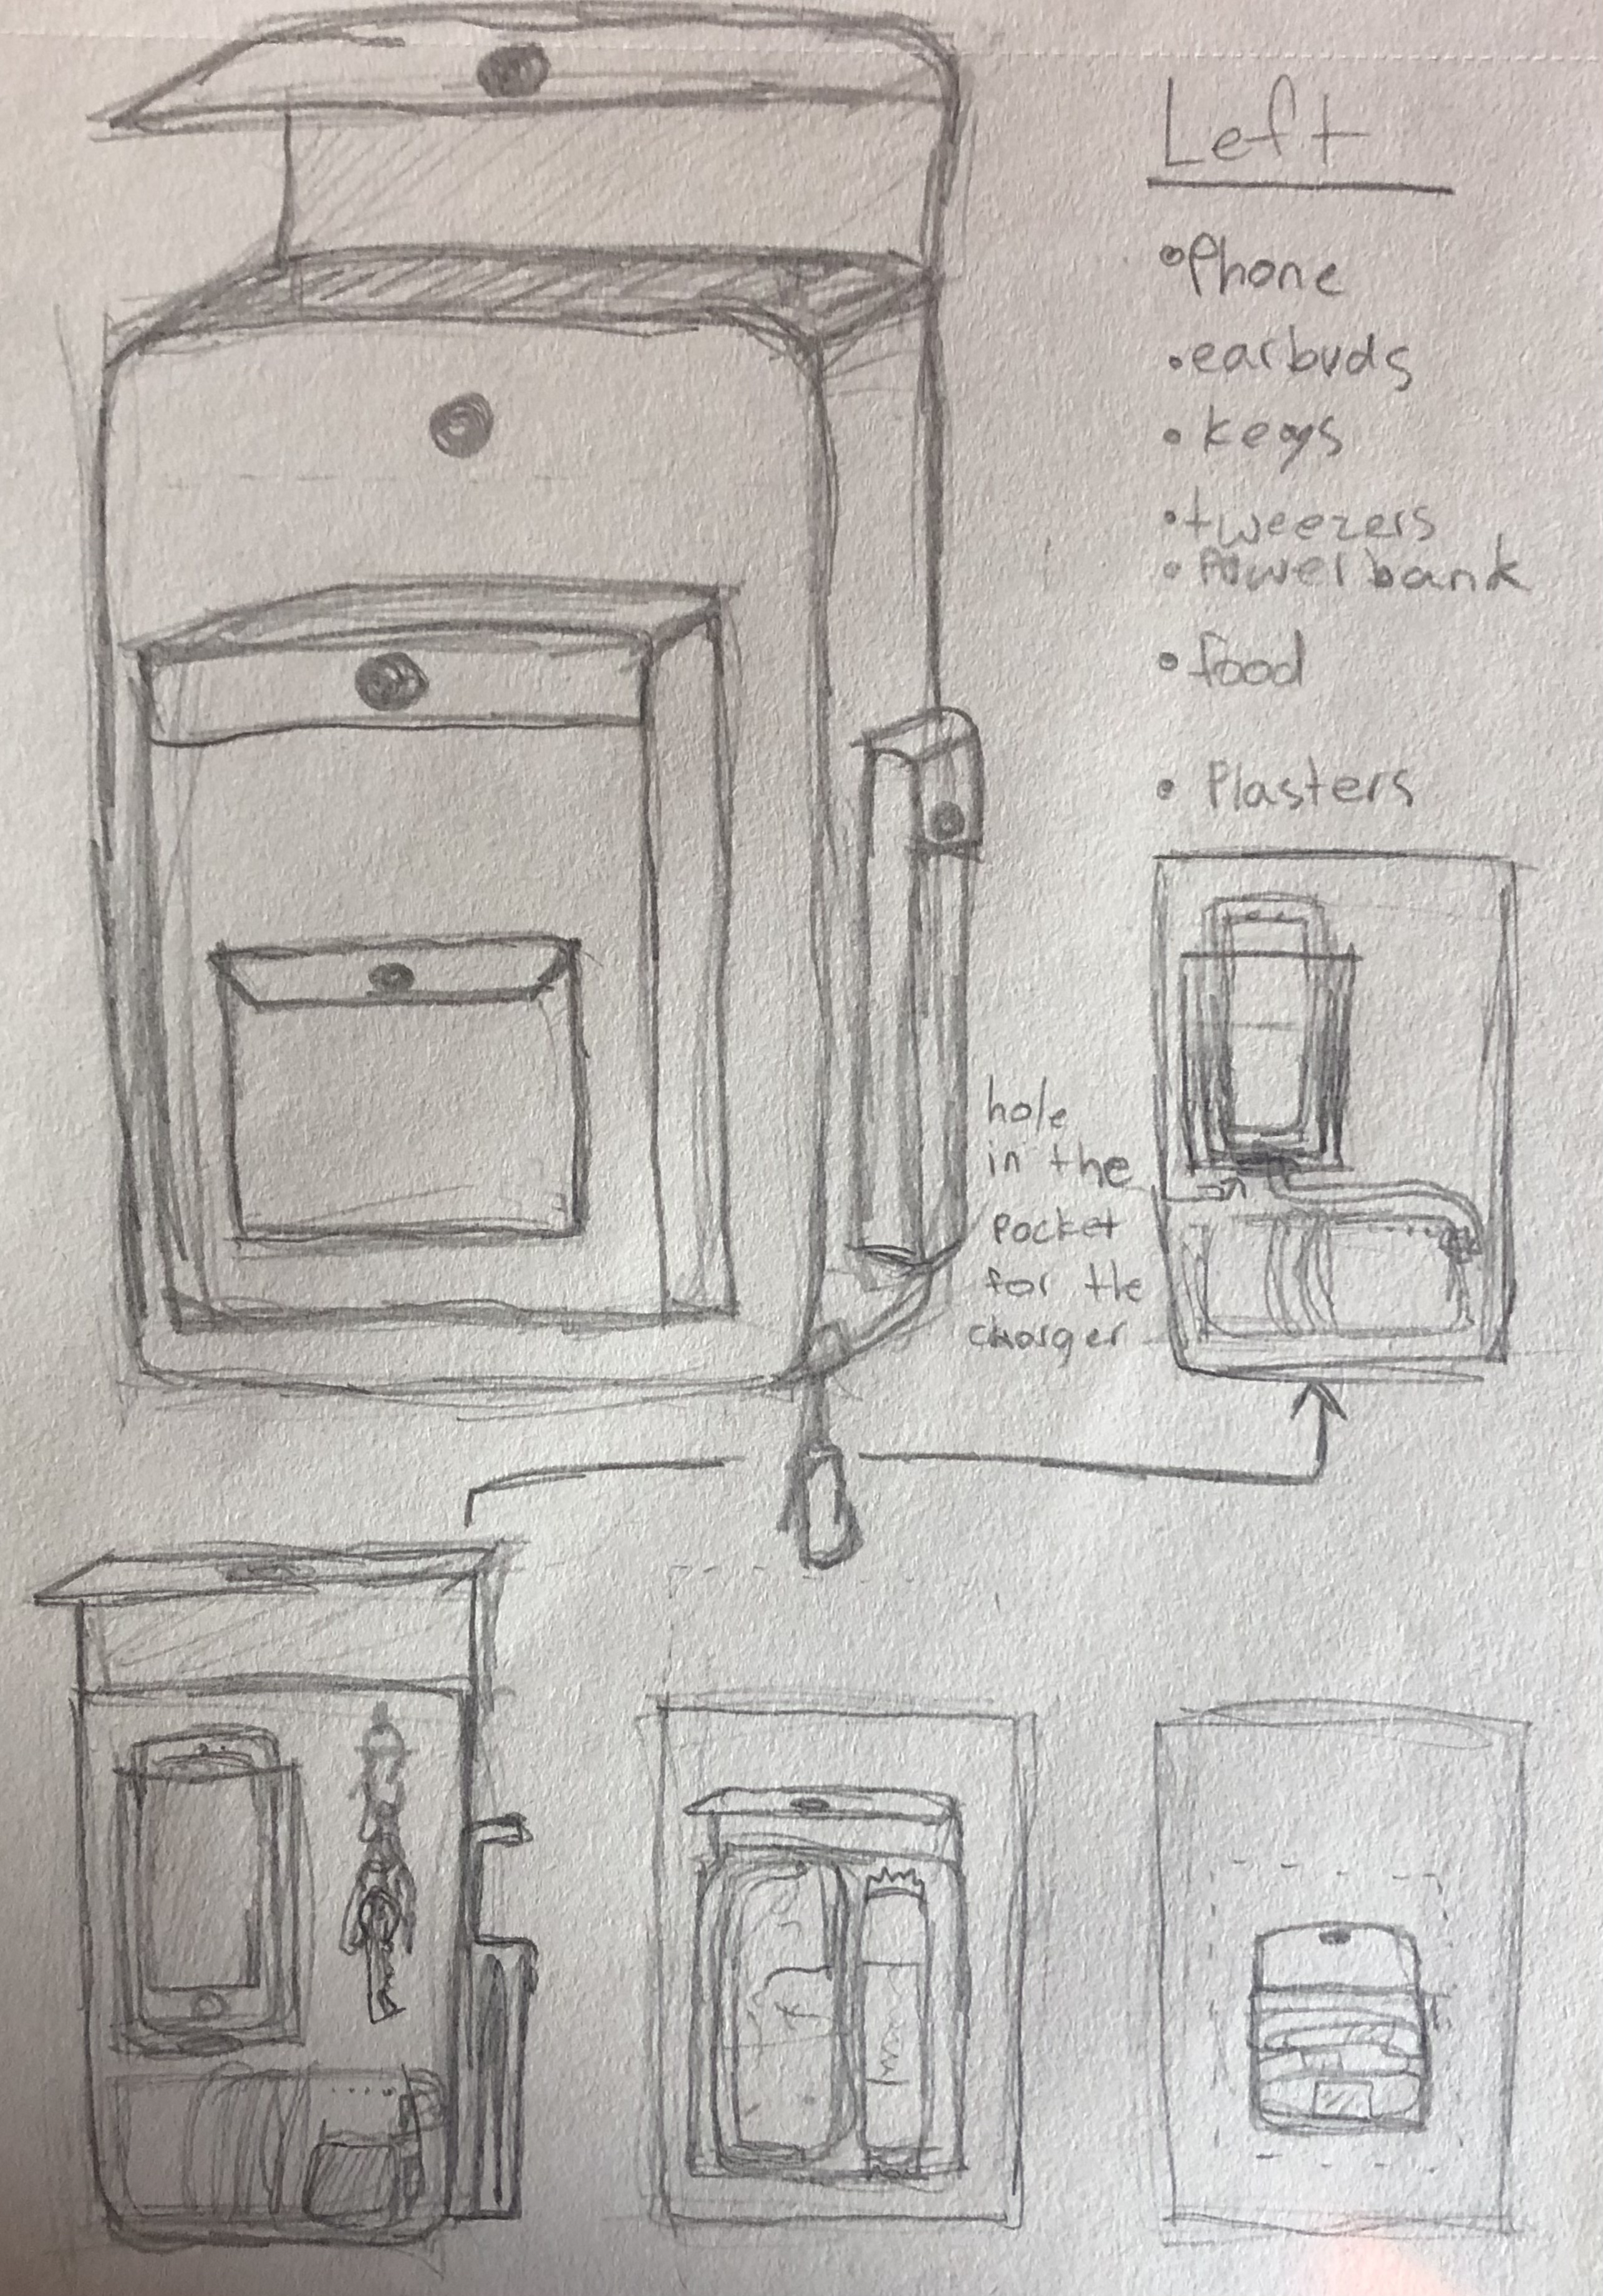 Left
•Phone
•earbuds
•keys
•tweezers
•Powerbank
•food
• Plasters
hole
in the
pocket
for the
charger